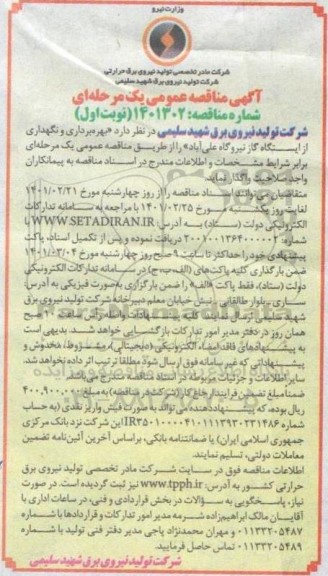 وزارت نیرو
شرکت مادر تخصصی تولید نیروی برق حرارتی
شرکت تولید نیروی برق شهید سلیمی
آگهی مناقصه عمومی یک مرحله‌ای
شماره مناقصه: ۱۴۰۱۳۰۲ (نوبت اول)
شرکت تولید نیروی برق شهید سلیمی در نظر دارد «بهره‌برداری و نگهداری
از ایستگاه گاز نیروگاه علی‌آباد» را از طریق مناقصه عمومی یک مرحله‌ای
برابر شرایط مشخصات و اطلاعات مندرج در اسناد مناقصه به پیمانکاران
واجد صلاحیت واگذار نماید.
متقاضیان می‌توانند اسناد مناقصه را از روز چهارشنبه مورخ ۱۴۰۱/۰۲/۲۱
لغایت روز یکشنبه مورخ ۱۴۰۱/۰۲/۲۵ با مراجعه به سامانه تدارکات
الکترونیکی دولت (ستاد) به آدرس: WWW.SETADIRAN.IR با
شماره: ۲۰۰۱۰۰۱۳۶۴۰۰۰۰۰۲ دریافت نموده و پس از تکمیل اسناد، پاکت
پیشنهادی خود را حداکثر تا ساعت ۹ صبح روز چهارشنبه مورخ ۱۴۰۱/۰۳/۰۴
ضمن بارگذاری کلیه پاکت‌های (الف، ب، ج) در سامانه تدارکات الکترونیکی
دولت (ستاد)، فقط پاکت «الف» را ضمن بارگزاری به‌صورت فیزیکی به آدرس:
ساری، بلوار طالقانی، نبش خیابان معلم دبیرخانه شرکت تولید نیروی برق
شهید سلیمی ارسال نمایند. کلیه پیشنهادات واصله رأس ساعت ۱۰ صبح
همان روز در دفتر مدیر امور تدارکات بازگشایی خواهد شد. بدیهی است
به پیشنهادهای فاقد امضاء الکترونیکی (دیجیتالی)، مشروط، مخدوش و
پیشنهاداتی که غیر سامانه فوق ارسال شود مطلقا ترتیب اثر داده نخواهد شد.
سایر اطلاعات و جزئیات مربوطه در اسناد مناقصه مندرج می‌باشد.
ضمنا مبلغ تضمین فرایند ارجاع کار (شرکت در مناقصه) به مبلغ ۴۰۰,۹۰۰,۰۰۰
ریال بوده، که پیشنهاددهنده می‌تواند به صورت فیش واریز نقدی (به حساب
شماره IR۳۵۰۱۰۰۰۰۴۱۰۱۱۱۳۹۳۰۲۳۱۴۸۶ این شرکت نزد بانک مرکزی
جمهوری اسلامی ایران) یا ضمانتنامه بانکی، براساس آخرین آئین‌نامه تضمین
معاملات دولتی، تسلیم نمایند.
اطلاعات مناقصه فوق در سایت شرکت مادر تخصصی تولید نیروی برق
حرارتی کشور به آدرس: www.tpph.ir نیز ثبت گردیده است. در صورت
نیاز، پاسخگویی به سؤالات در بخش قراردادی و فنی، در ساعات اداری با
آقایان مالک ابراهیم‌زاده شرمه مدیر امور تدارکات و قراردادها با شماره
۰۱۱۳۳۲۰۵۴۸۷ و مهران محمدنژاد پاجی مدیر دفتر فنی تولید با شماره
۰۱۱۳۳۲۰۵۴۸۹ تماس حاصل فرمایید.
شرکت تولید نیروی برق شهید سلیمی